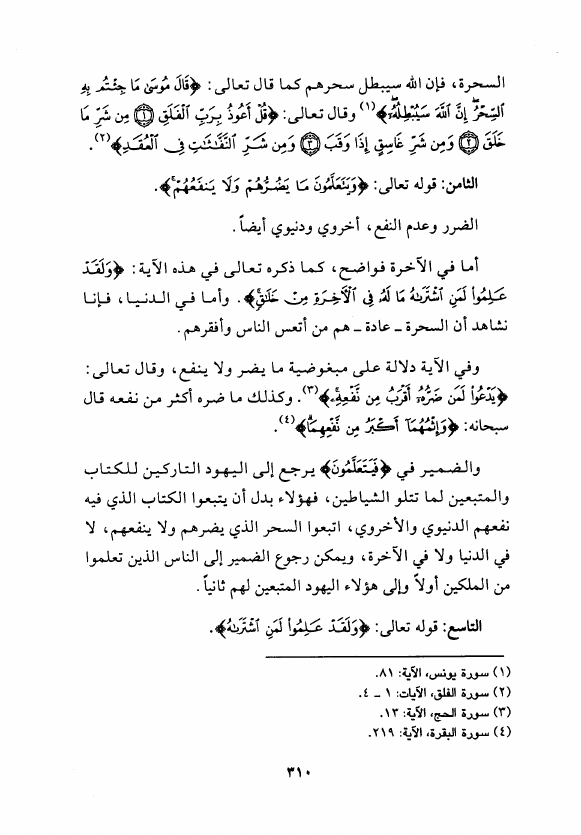 السحرة، فإن الله سيبطل سحرهم كما قال تعالى: ﴿قَالَ مُوسَىٰ مَا جِئْتُم بِهِ
السِّحْرُ إِنَّ اللَّهَ سَيُبْطِلُهُ﴾(١) وقال تعالى: ﴿قُلْ أَعُوذُ بِرَبِّ الْفَلَقِ ١ مِن شَرِّ مَا
خَلَقَ ٢ وَمِن شَرِّ غَاسِقٍ إِذَا وَقَبَ ٣ وَمِن شَرِّ النَّفَّاثَاتِ فِى الْعُقَدِ﴾(٢).
الثامن: قوله تعالى: ﴿وَيَتَعَلَّمُونَ مَا يَضُرُّهُمْ وَلَا يَنفَعُهُمْ﴾.
الضرر وعدم النفع، أخروي ودنيوي أيضاً.
أما في الآخرة فواضح، كما ذكره تعالى في هذه الآية: ﴿وَلَقَدْ
عَلِمُوا لَمَنِ اشْتَرَاهُ مَا لَهُ فِى الْآخِرَةِ مِنْ خَلَاقٍ﴾. وأما في الدنيا، فإنا
نشاهد أن السحرة ـ عادة ـ هم من أتعس الناس وأفقرهم.
وفي الآية دلالة على مبغوضية ما يضر ولا ينفع، وقال تعالى:
﴿يَدْعُوا لَمَن ضَرُّهُ أَقْرَبُ مِن نَّفْعِهِ﴾(٣). وكذلك ما ضره أكثر من نفعه قال
سبحانه: ﴿وَإِثْمُهُمَا أَكْبَرُ مِن نَّفْعِهِمَا﴾(٤).
والضمير في ﴿فَيَتَعَلَّمُونَ﴾ يرجع إلى اليهود التاركين للكتاب
والمتبعين لما تتلو الشياطين، فهؤلاء بدل أن يتبعوا الكتاب الذي فيه
نفعهم الدنيوي والأخروي، اتبعوا السحر الذي يضرهم ولا ينفعهم، لا
في الدنيا ولا في الآخرة، ويمكن رجوع الضمير إلى الناس الذين تعلموا
من الملكين أولاً وإلى هؤلاء اليهود المتبعين لهم ثانياً.
التاسع: قوله تعالى: ﴿وَلَقَدْ عَلِمُوا لَمَنِ اشْتَرَاهُ﴾.
(١) سورة يونس، الآية: ٨١.
(٢) سورة الفلق، الآيات: ١ ـ ٤.
(٣) سورة الحج، الآية: ١٣.
(٤) سورة البقرة، الآية: ٢١٩.
٣١٠